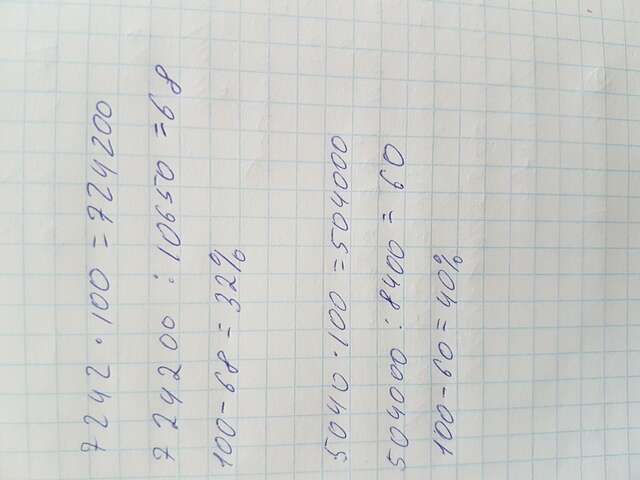 7242 · 100 = 724200
724200 : 10650 = 68
100 - 68 = 32%
5040 · 100 = 504000
504000 : 8400 = 60
100 - 60 = 40%